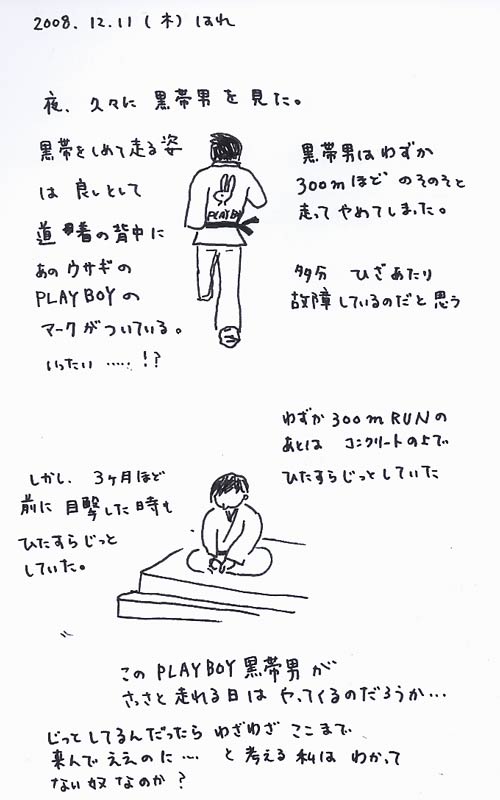 2008.12.11(木)はれ
夜、久々に黒帯男を見た。
黒帯をしめて走る姿
は良しとして
道着の背中に
あのウサギの
PLAYBOYの
マークがついている。
いったい……!?
PLAYBOY
黒帯男はわずか
300mほどのそのそと
走ってやめてしまった。
多分 ひざあたり
故障しているのだと思う
わずか300mRUNの
あとは コンクリートの上で
ひたすらじっとしていた
しかし、3ヶ月ほど
前に目撃した時も
ひたすらじっと
していた。
このPLAYBOY黒帯男が
さっさと走れる日はやってくるのだろうか…
じっとしてるんだったらわざわざここまで
来んでええのに…と考える私はわかって
ない奴なのか?